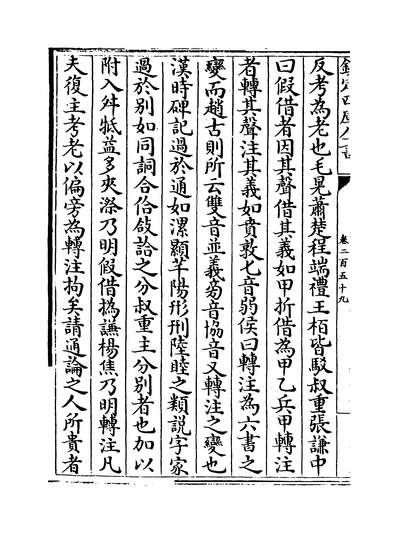 欽定四庫全書
卷二百五十九
反考為老也毛晃蕭楚程端禮王栢皆駁叔重張謙中
曰假借者因其聲借其義如甲折借為甲乙兵甲轉注
者轉其聲注其義如賁敦七音弱侯曰轉注為六書之
變而趙古則所云雙音並義旁音協音又轉注之變也
漢時碑記過於通如漯顯芊陽形刑陸睦之類說字家
過於別如同詞合佮敆詥之分叔重主分別者也加以
附入舛牴益多夾漈乃明假借撝謙楊焦乃明轉注凡
夫復主考老以偏旁為轉注拘矣請通論之人所貴者